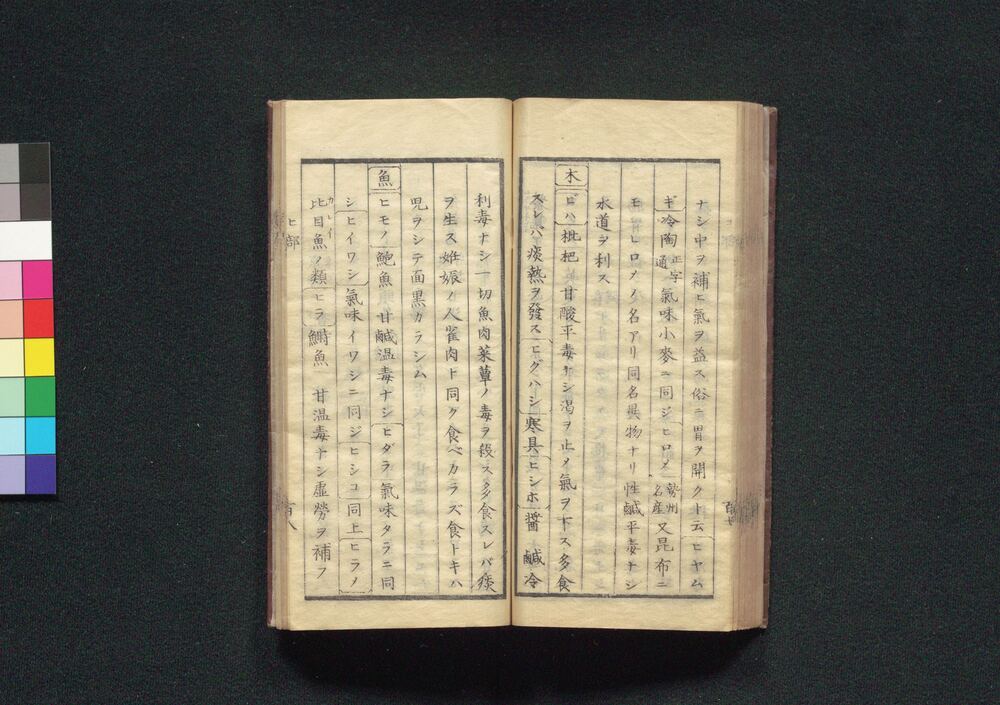 ナシ中ヲ補ヒ氣ヲ益ス俗ニ胃ヲ開クト云ヒヤム
ギ冷陶正字通氣味小麥ニ同ジヒロメ勢州名産又昆布ニ
モヒロメノ名アリ同名異物ナリ性鹹平毒ナシ
水道ヲ利ス
木ビハ枇杷甘酸平毒ナシ渇ヲ止メ氣ヲ下ス多食
スレハ痰熱ヲ發スヒグハシ寒具ヒシホ醤鹹冷
利毒ナシ一切魚肉菜蕈ノ毒ヲ殺ス多食スレバ痰
ヲ生ス姙娠ノ人雀肉ト同ク食ベカラズ食トキハ
児ヲシテ面黒カラシム
魚ヒモノ鮑魚甘鹹温毒ナシヒダラ氣味タラニ同
シヒイワシ氣味イワシニ同ジヒシコ同上ヒラメ
比目魚カレイノ類ヒラ鰣魚甘温毒ナシ虚勞ヲ補フ
ヒ部
百八